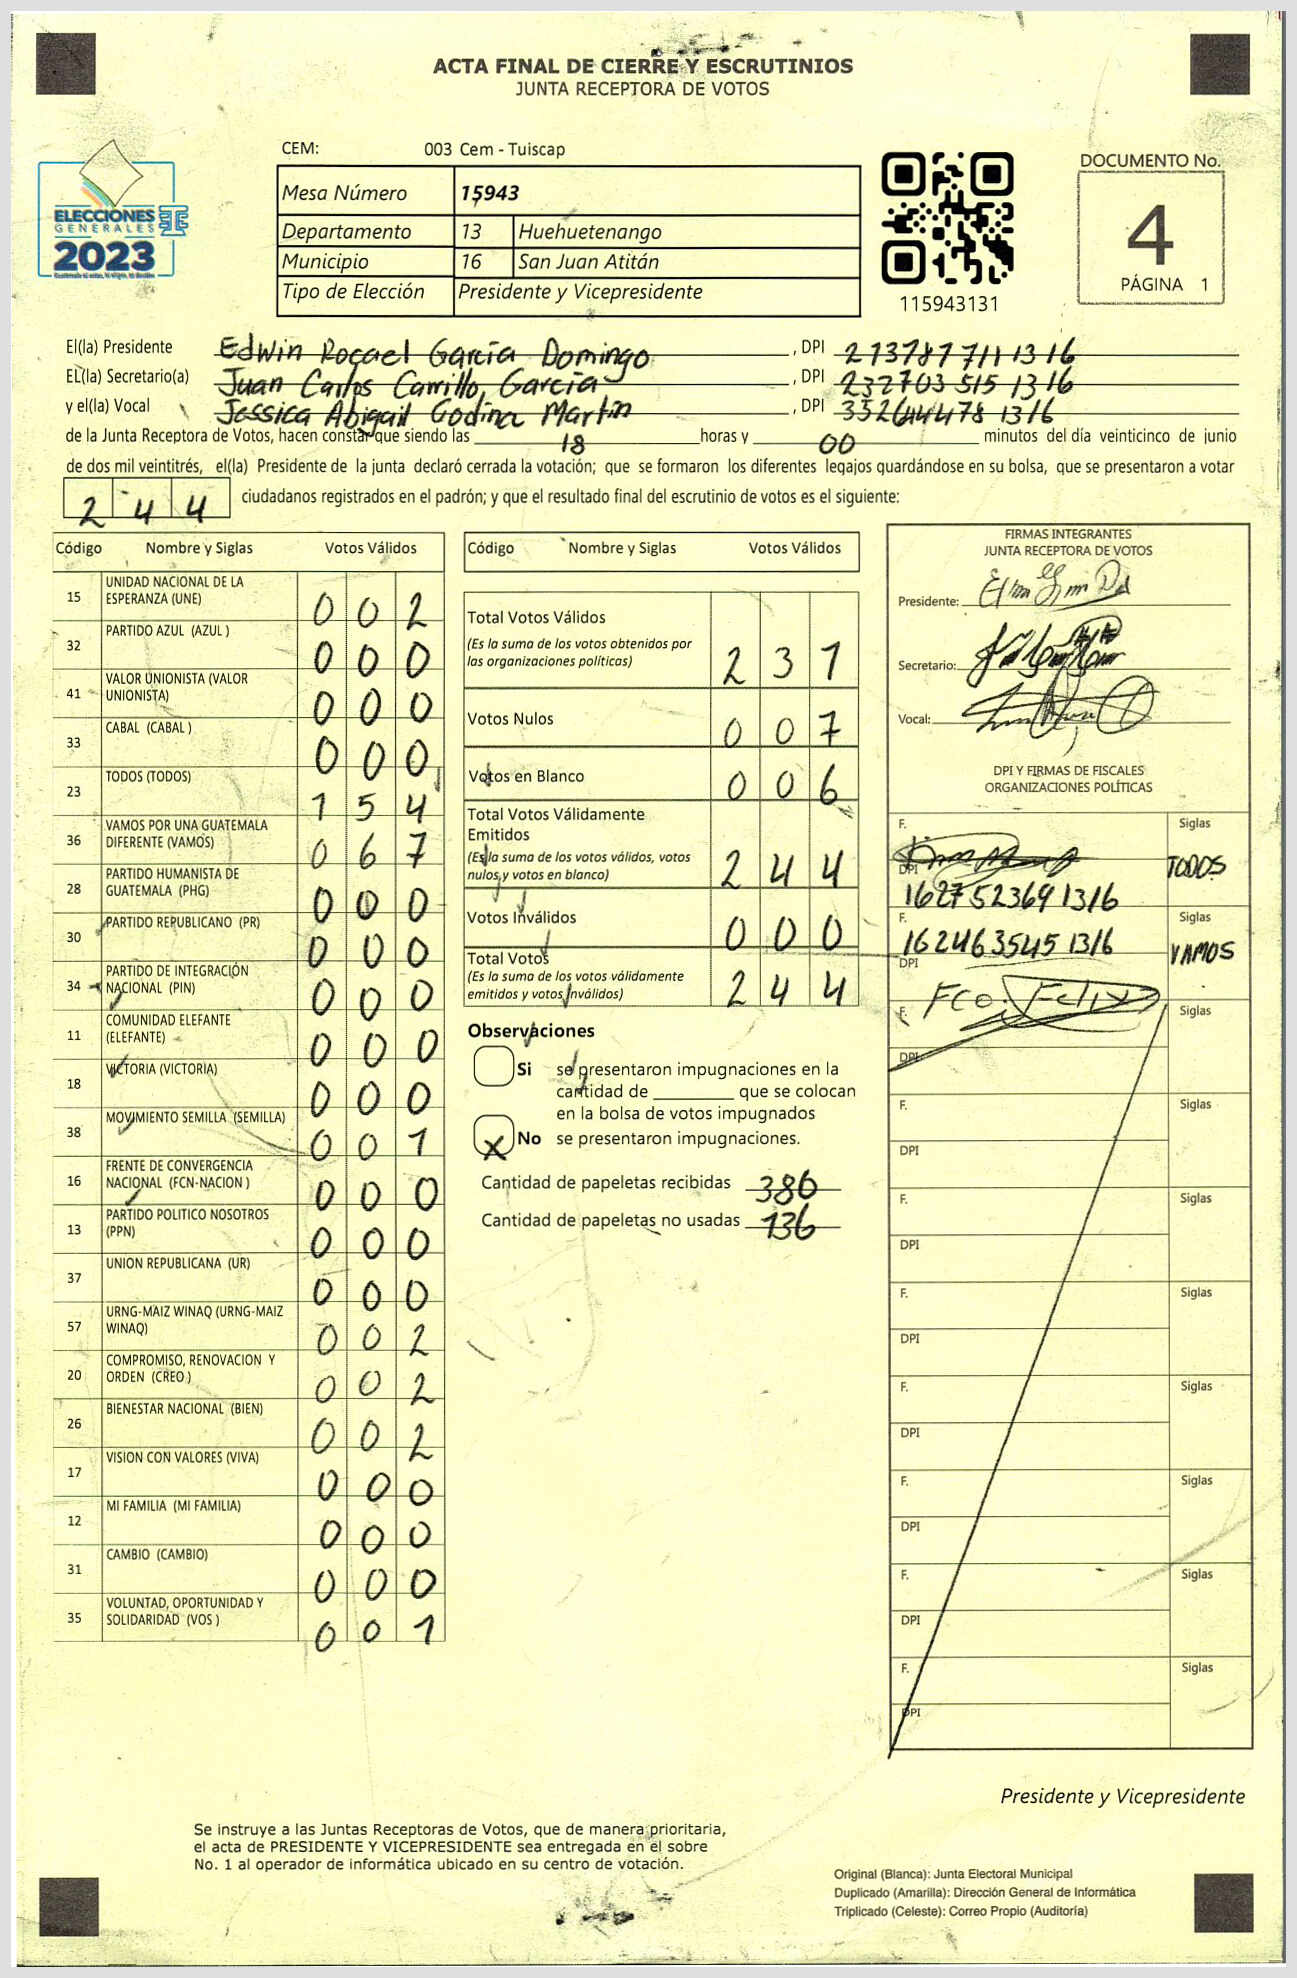 ACTA FINAL DE CIERRE Y ESCRUTINIOS
JUNTA RECEPTORA DE VOTOS
CEM: 003 Cem - Tuiscap
ELECCIONES
GENERALES
2023
Mesa Número 15943
Departamento 13 Huehuetenango
Municipio 16 San Juan Atitán
Tipo de Elección Presidente y Vicepresidente
115943131
DOCUMENTO No.
4
PÁGINA 1
El(la) Presidente Edwin Rocael García Domingo, DPI 273787711 1316
EL(la) Secretario(a) Juan Carlos Carrillo García, DPI 232703515 1316
y el(la) Vocal Jessica Abigail Godinez Martín, DPI 352644478 1316
de la Junta Receptora de Votos, hacen constar que siendo las 18 horas y 00 minutos del día veinticinco de junio
de dos mil veintitrés, el(la) Presidente de la junta declaró cerrada la votación; que se formaron los diferentes legajos guardándose en su bolsa, que se presentaron a votar
244 ciudadanos registrados en el padrón; y que el resultado final del escrutinio de votos es el siguiente:
Código Nombre y Siglas Votos Válidos
15 UNIDAD NACIONAL DE LA ESPERANZA (UNE) 002
32 PARTIDO AZUL (AZUL ) 000
41 VALOR UNIONISTA (VALOR UNIONISTA) 000
33 CABAL (CABAL ) 000
23 TODOS (TODOS) 154
36 VAMOS POR UNA GUATEMALA DIFERENTE (VAMOS) 067
28 PARTIDO HUMANISTA DE GUATEMALA (PHG) 000
30 PARTIDO REPUBLICANO (PR) 000
34 PARTIDO DE INTEGRACIÓN NACIONAL (PIN) 000
11 COMUNIDAD ELEFANTE (ELEFANTE) 000
18 VICTORIA (VICTORIA) 000
38 MOVIMIENTO SEMILLA (SEMILLA) 001
16 FRENTE DE CONVERGENCIA NACIONAL (FCN-NACION ) 000
13 PARTIDO POLITICO NOSOTROS (PPN) 000
37 UNION REPUBLICANA (UR) 000
57 URNG-MAIZ WINAQ (URNG-MAIZ WINAQ) 002
20 COMPROMISO, RENOVACION Y ORDEN (CREO ) 002
26 BIENESTAR NACIONAL (BIEN) 002
17 VISION CON VALORES (VIVA) 000
12 MI FAMILIA (MI FAMILIA) 000
31 CAMBIO (CAMBIO) 000
35 VOLUNTAD, OPORTUNIDAD Y SOLIDARIDAD (VOS ) 001
Código Nombre y Siglas Votos Válidos
Total Votos Válidos
(Es la suma de los votos obtenidos por
las organizaciones políticas) 231
Votos Nulos 007
Votos en Blanco 006
Total Votos Válidamente
Emitidos
(Es la suma de los votos válidos, votos
nulos y votos en blanco) 244
Votos Inválidos 000
Total Votos
(Es la suma de los votos válidamente
emitidos y votos inválidos) 244
Observaciones
Si se presentaron impugnaciones en la
cantidad de ________ que se colocan
en la bolsa de votos impugnados
X No se presentaron impugnaciones.
Cantidad de papeletas recibidas 380
Cantidad de papeletas no usadas 136
FIRMAS INTEGRANTES
JUNTA RECEPTORA DE VOTOS
Presidente:
Secretario:
Vocal:
DPI Y FIRMAS DE FISCALES
ORGANIZACIONES POLÍTICAS
F. Siglas
TODOS
DPI
162752369 1316
F. Siglas
162463545 1316 VAMOS
DPI
Fco. Felix
F. Siglas
DPI
F. Siglas
DPI
F. Siglas
DPI
F. Siglas
DPI
F. Siglas
DPI
F. Siglas
DPI
F. Siglas
DPI
F. Siglas
DPI
Presidente y Vicepresidente
Se instruye a las Juntas Receptoras de Votos, que de manera prioritaria,
el acta de PRESIDENTE Y VICEPRESIDENTE sea entregada en el sobre
No. 1 al operador de informática ubicado en su centro de votación.
Original (Blanca): Junta Electoral Municipal
Duplicado (Amarilla): Dirección General de Informática
Triplicado (Celeste): Correo Propio (Auditoría)